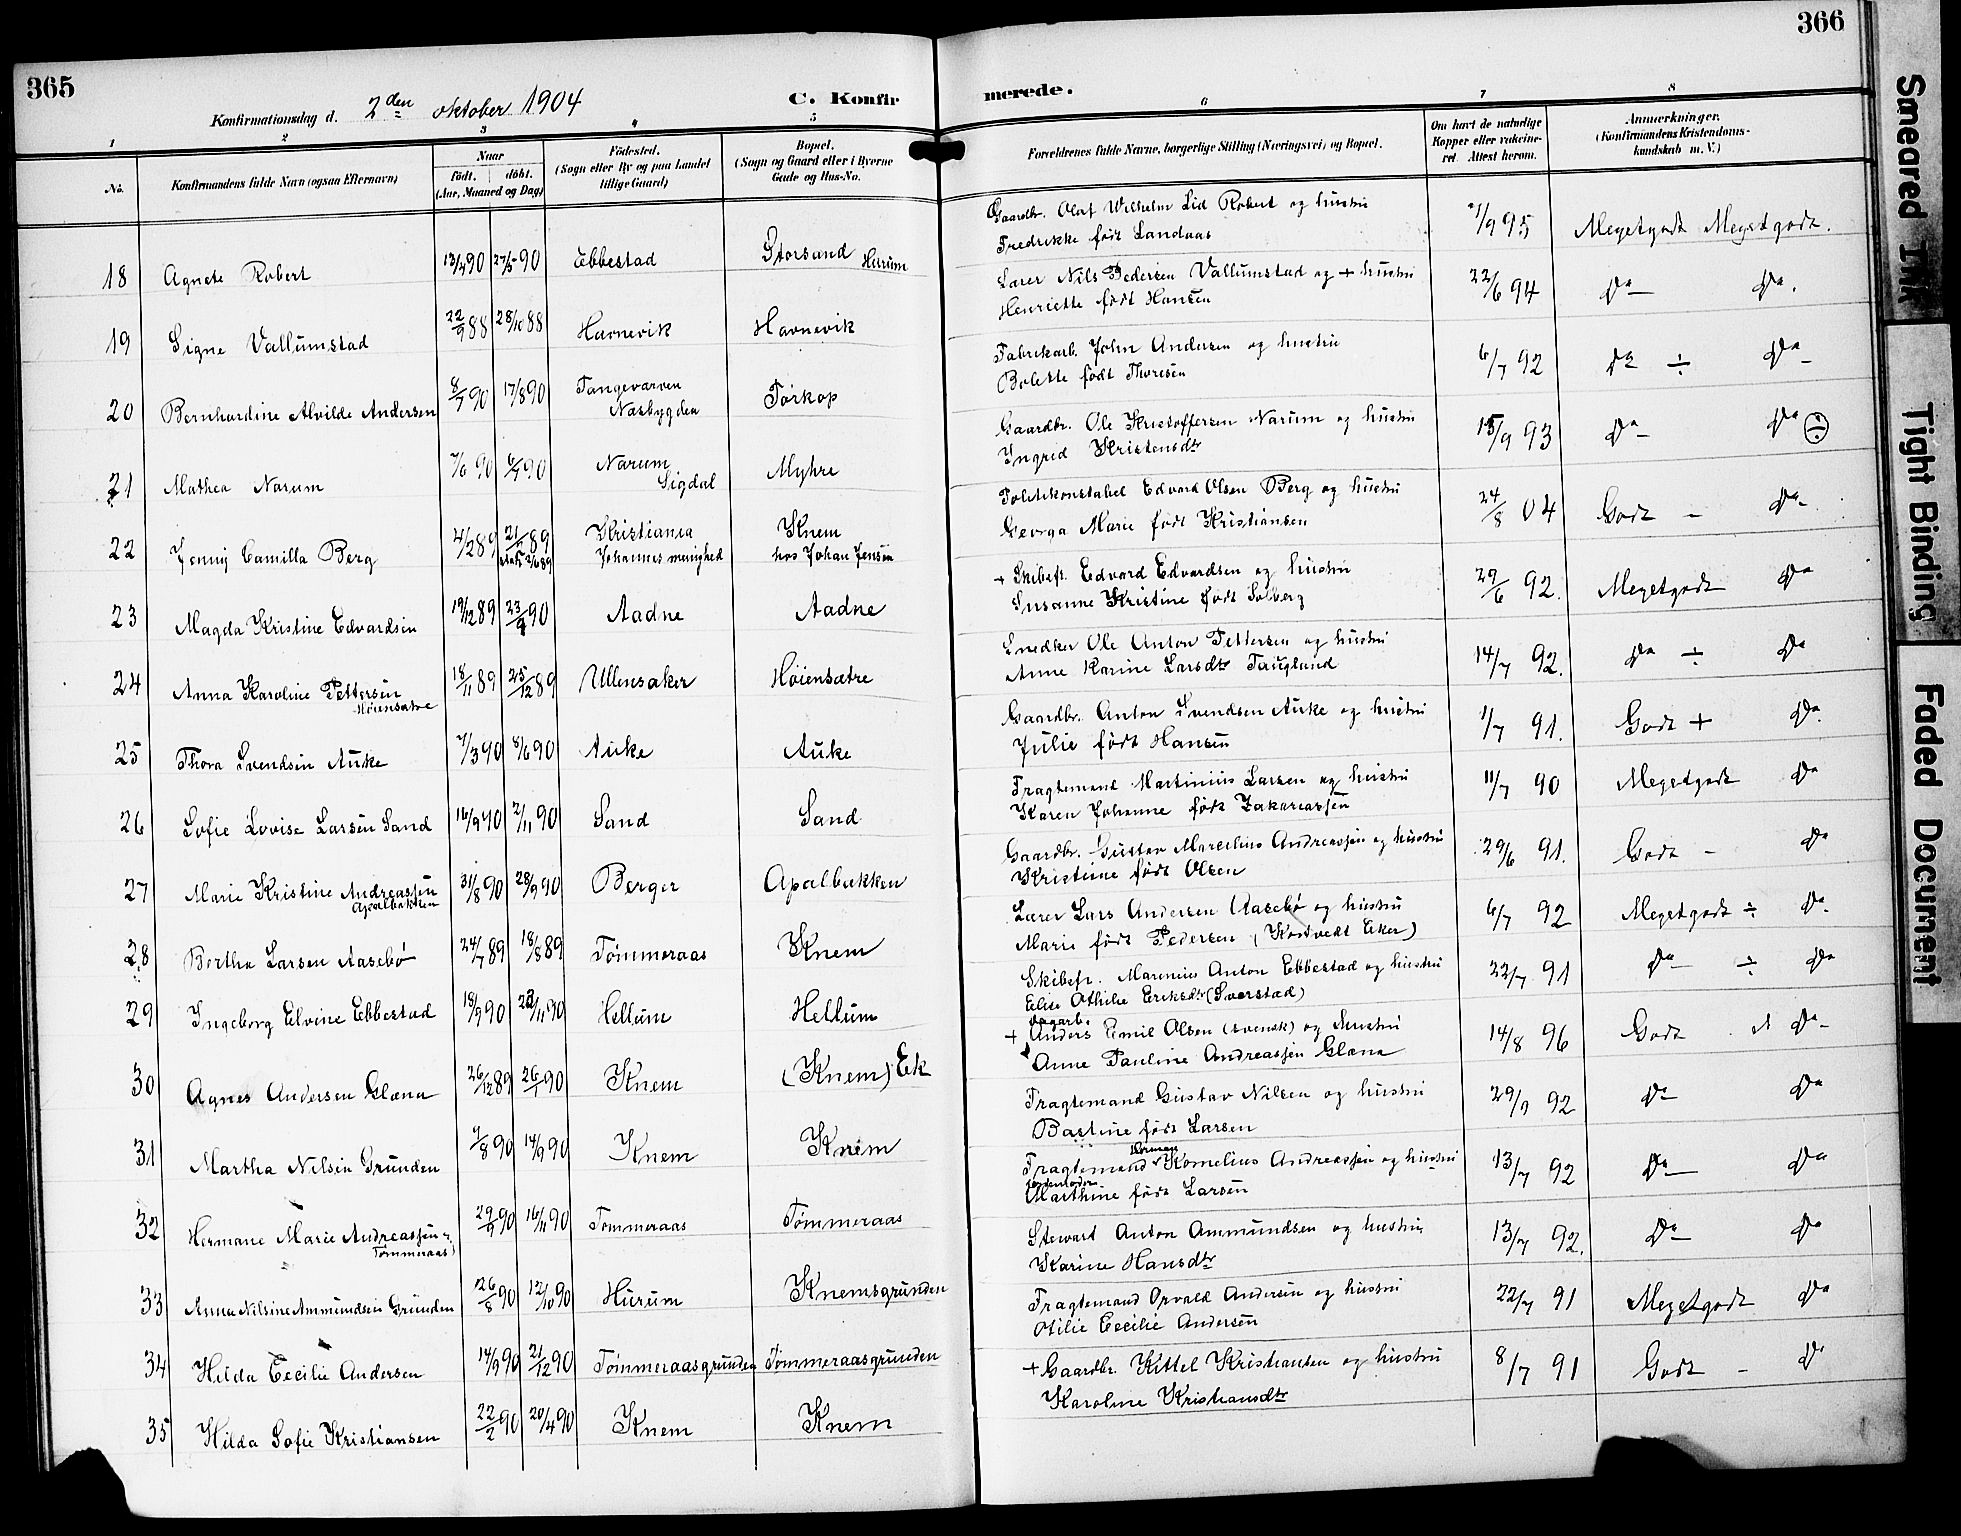 365
366
Konfirmationsdag d. 2den oktober 1904
C. Konfirmerede.
1 2 3 4 5 6 7 8
No.
Konfirmandens fulde Navn (ogsaa Efternavn)
Naar
født. døbt.
(Aar, Maaned og Dag)
Fødested.
(Sogn eller By og paa Landet
tillige Gaard)
Bopæl.
(Sogn og Gaard eller i Byerne
Gade og Hus-No.
Forældrenes fulde Navne, borgerlige Stilling (Næringsvei) og Bopæl.
Om havt de naturlige
Kopper eller vaksine-
ret. Attest herom.
Anmerkninger.
(Konfirmandens Kristendoms-
kundskab m. V.)
18 Agnete Robert 13/4 90 27/5 90 Ebbestad Storsand Hurum
Gaardbr. Olaf Wilhelm Lid Robert og hustru
Fredrikke født Landaas
1/9 95 Megetgodt Megetgodt.
19 Signe Vallumstad 22/9 88 28/10 88 Havnevik Havnevik
Lærer Nils Pedersen Vallumstad og + hustru
Henriette født Hansen
22/6 94 Do Do.
20 Bernhardine Alvilde Andersen 8/7 90 17/8 90 Tangevarven
Næsbygden Torkop
Fabrikarb. John Andersen og hustru
Bolette født Thoresen
6/7 92 Do ÷ Do
21 Mathea Narum 7/6 90 6/7 90 Narum
Sigdal Myhre
Gaardbr. Ole Kristoffersen Narum og hustru
Ingrid Kristensdtr
15/9 93 Do Do
22 Jenny Camilla Berg 4/2 89 21/7 89 Kristiania
Johannes menighed Knem
hos Johan Jensen
Politikonstabel Edvard Olsen Berg og hustru
Georga Marie født Kristiansen
24/8 04 Godt - Do
23 Magda Kristine Edvardsen 19/12 89 23/4 90 Aadne Aadne
+ Skibsf. Edvard Edvardsen og hustru
Susanne Kristine født Solberg
29/6 92. Megetgodt Do
24 Anna Karoline Pettersen
Høiensætre 18/11 89 25/12 89 Ullensaker Høiensætre
Snedker Ole Anton Pettersen og hustru
Anne Karine Larsdtr Fauglund
14/7 92. Do ÷ Do
25 Thora Svendsen Auke 7/3 90 8/6 90 Auke Auke
Gaardbr. Anton Svendsen Auke og hustru
Julie født Hansen
1/7 91. Godt + Do
26 Sofie Lovise Larsen Sand 16/9 90 2/11 90 Sand Sand
Fragtemand Martinius Larsen og hustru
Karen Johanne født Zakariassen
11/7 90 Megetgodt Do
27 Marie Kristine Andreassen
Apalbukken 31/8 90 28/9 90 Berger Apalbukken
Gaardbr. Gustav Marcelius Andreassen og hustru
Kristine født Olsen
29/6 91. Godt - Do
28 Bertha Larsen Aasebø 24/7 89 18/8 89 Tømmeraas Knem
Lærer Lars Andersen Aasebø og hustru
Marie født Pedersen (Kostvedt Eker)
6/7 92 Megetgodt ÷ Do
29 Ingeborg Elvine Ebbestad 18/9 90 23/11 90 Hellum Hellum
Skibsfr. Marenius Anton Ebbestad og hustru
Elise Othilie Eriksdtr (Sverstad)
22/7 91 Do ÷ Do
30 Agnes Andersen Glæna 26/12 89 26/1 90 Knem (Knem) Ek
Dagarb.
+ Anders Emil Olsen (svensk) og hustru
Anne Pauline Andreassen Glæna
14/8 96 Godt Do
31 Martha Nilsen Grunden 7/8 90 14/9 90 Knem Knem
Fragtemand Gustav Nilsen og hustru
Bastine født Larsen
29/9 92 Do Do
32 Hermane Marie Andreassen
Tømmeraas 29/9 90 16/11 90 Tømmeraas Tømmeraas
Herman
Fragtemand Kornelius Andreassen og hustru
Marthine født Larsen
13/7 92 Do Do
33 Anna Nilsine Ammundsen Grunden 26/8 90 12/10 90 Hurum Knemsgrunden
Stewart Anton Ammundsen og hustru
Karine Hansdtr
13/7 92. Do Do
34 Hilda Cecilie Andersen 14/9 90 21/12 90 Tømmeraasgrunden Tømmeraasgrunden
Fragtemand Orvald Andersen og hustru
Otilie Cecilie Andersen
22/7 91 Megetgodt Do
35 Hilda Sofie Kristiansen 22/2 90 20/4 90 Knem Knem
+ Gaardbr. Kittel Kristiansen og hustru
Karoline Kristiansdtr
8/7 91 Godt - Do
Smeared Ink
Tight Binding
Faded Document